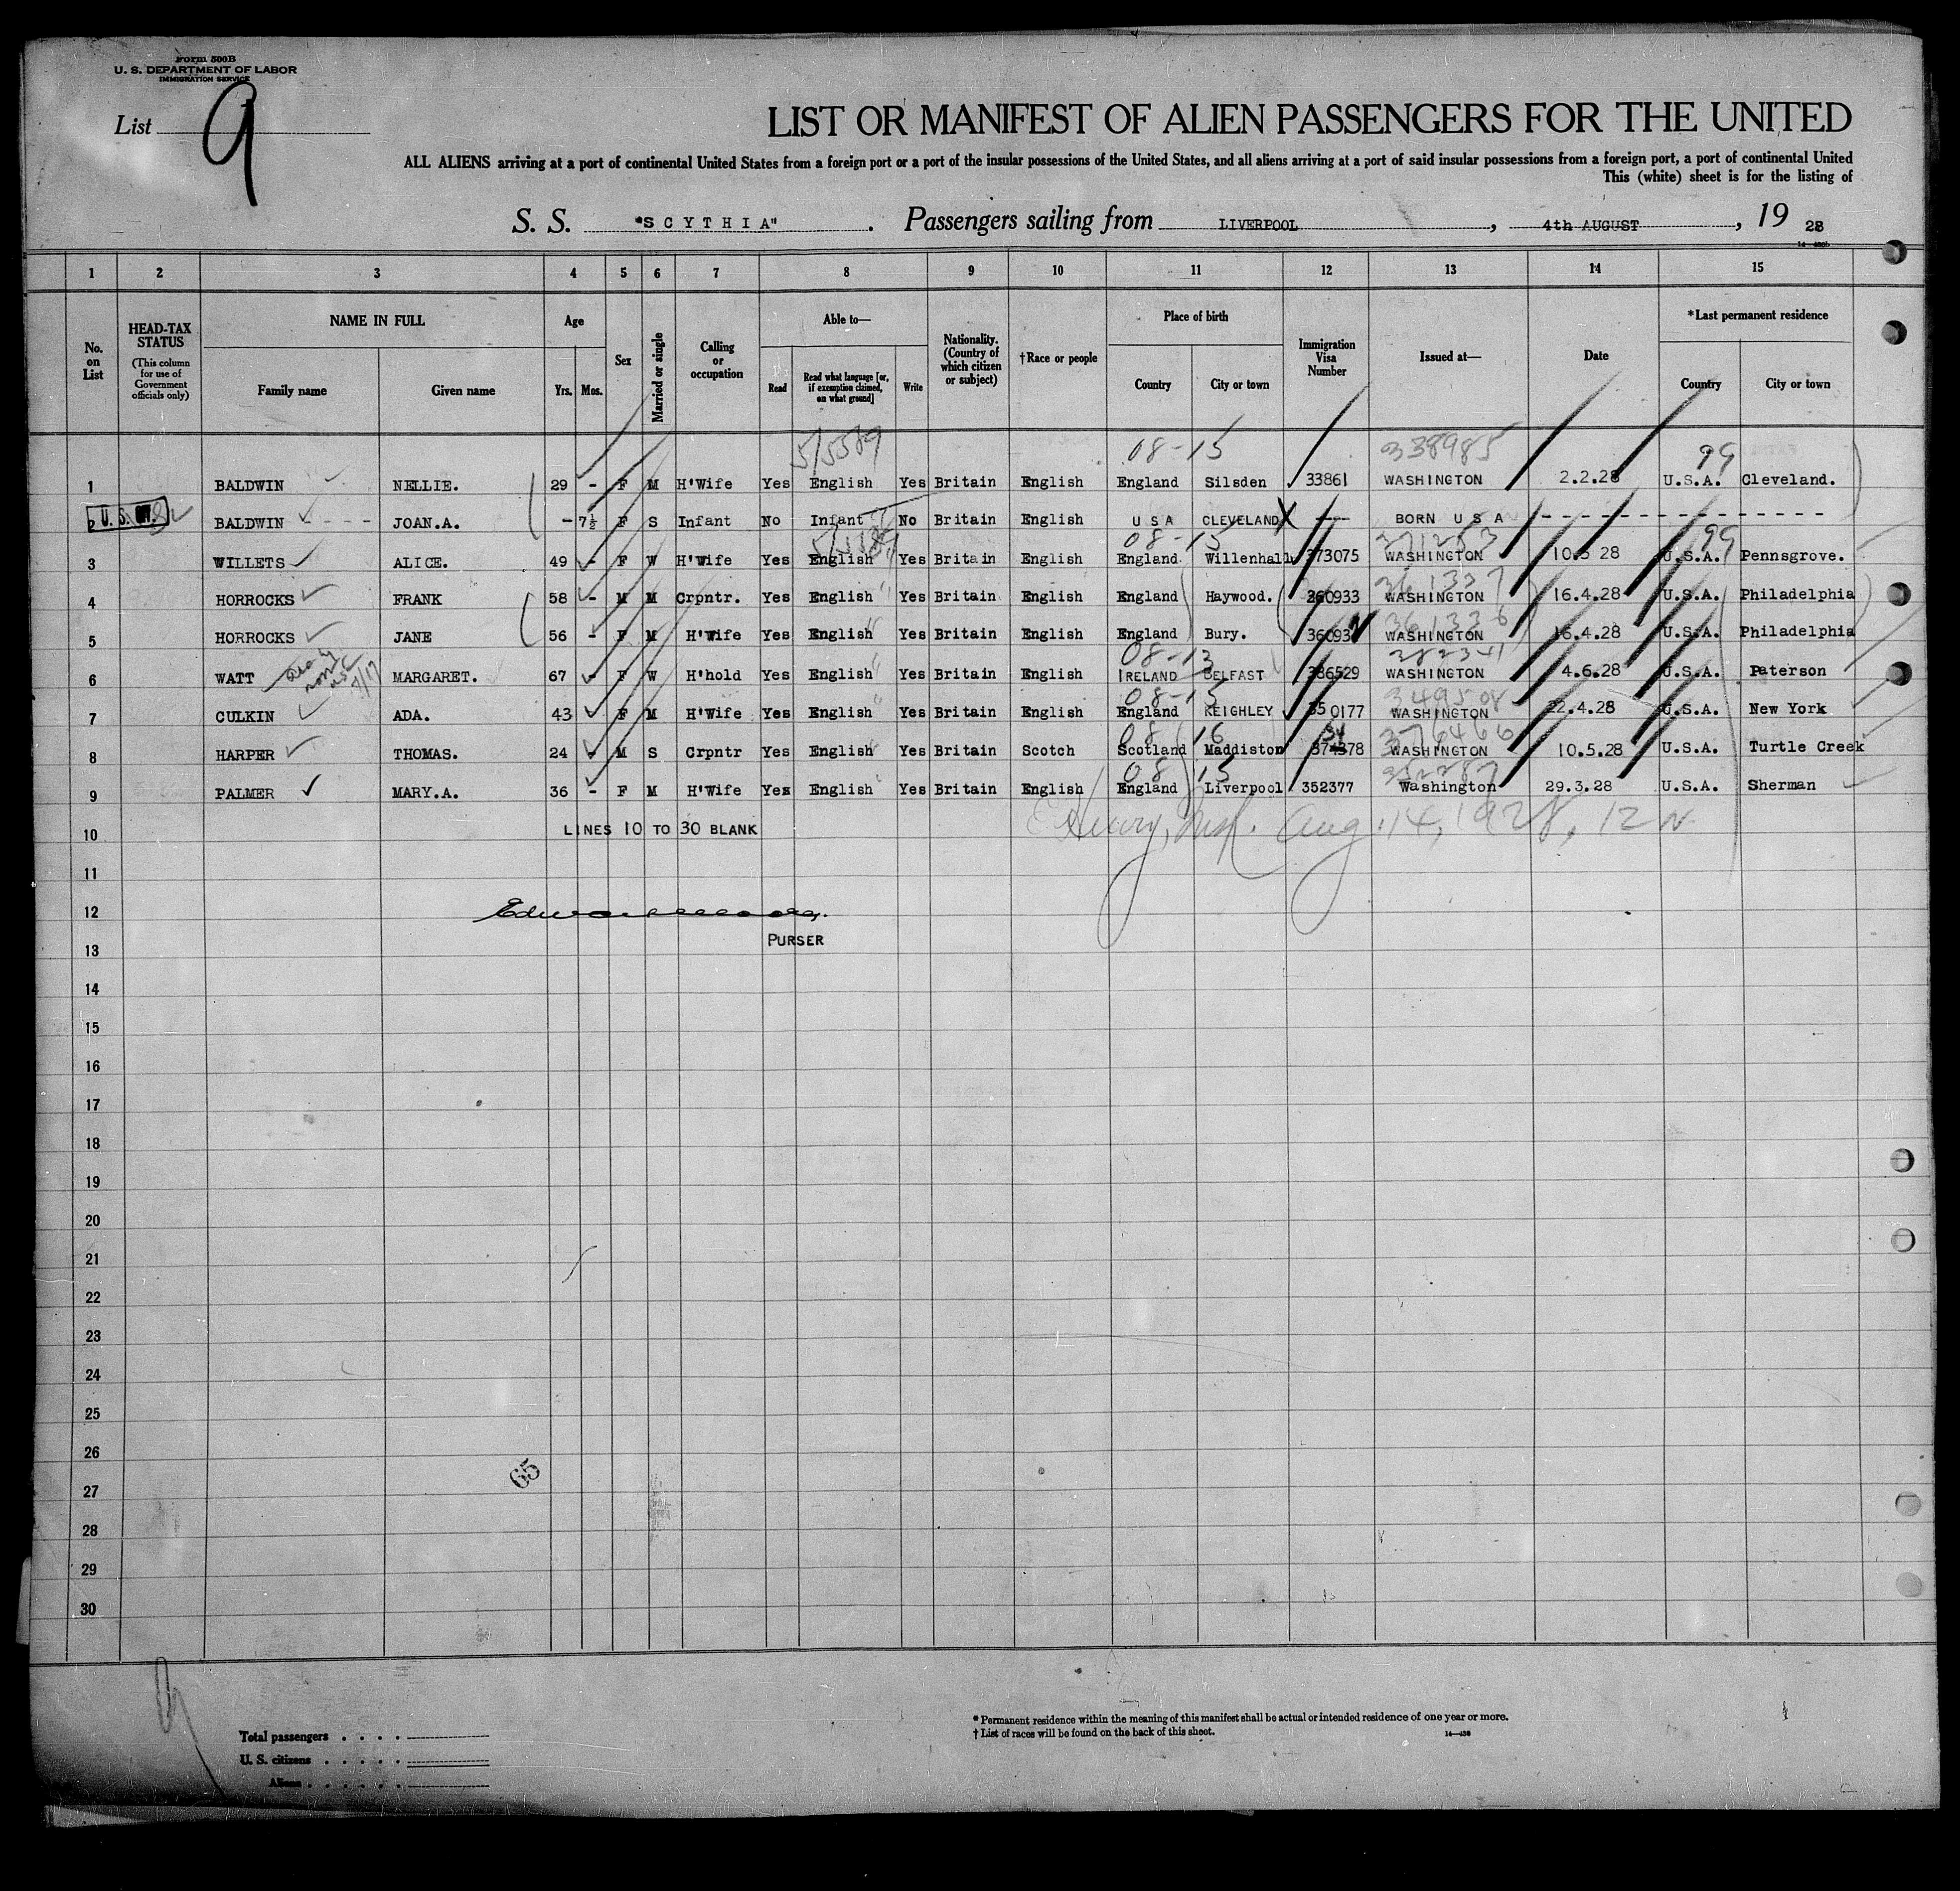 Form 500B
U. S. DEPARTMENT OF LABOR
IMMIGRATION SERVICE
List 9
LIST OR MANIFEST OF ALIEN PASSENGERS FOR THE UNITED
ALL ALIENS arriving at a port of continental United States from a foreign port or a port of the insular possessions of the United States, and all aliens arriving at a port of said insular possessions from a foreign port, a port of continental United
This (white) sheet is for the listing of
S. S. "SCYTHIA". Passengers sailing from LIVERPOOL, 4th AUGUST, 19 28
1 2 3 4 5 6 7 8 9 10 11 12 13 14 15
No. on List
HEAD-TAX STATUS (This column for use of Government officials only)
NAME IN FULL
Family name Given name
Age
Yrs. Mos.
Sex
Married or single
Calling or occupation
Able to—
Read Read what language [or, if exemption claimed, on what ground] Write
Nationality. (Country of which citizen or subject)
†Race or people
Place of birth
Country City or town
Immigration Visa Number
Issued at—
Date
*Last permanent residence
Country City or town
5/5589 08-15 338985 99
1 BALDWIN NELLIE. 29 - F M H'Wife Yes English Yes Britain English England Silsden 33861 WASHINGTON 2.2.28 U.S.A. Cleveland.
2 U. S. BALDWIN - - - - JOAN.A. - 7½ F S Infant No Infant No Britain English U S A CLEVELAND X BORN U S A
08-15 99
3 WILLETS ALICE. 49 - F W H'Wife Yes English Yes Britain English England Willenhall 373075 WASHINGTON 10.5 28 U.S.A. Pennsgrove.
361337
4 HORROCKS FRANK 58 - M M Crpntr. Yes English Yes Britain English England Haywood. 360933 WASHINGTON 16.4.28 U.S.A. Philadelphia
361336
5 HORROCKS JANE 56 - F M H'Wife Yes English Yes Britain English England Bury. WASHINGTON 16.4.28 U.S.A. Philadelphia
08-13 382341
6 WATT MARGARET. 67 - F W H'hold Yes English Yes Britain English IRELAND BELFAST 386529 WASHINGTON 4.6.28 U.S.A. Paterson
08-15 349508
7 CULKIN ADA. 43 F M H'Wife Yes English Yes Britain English England KEIGHLEY 350177 WASHINGTON 22.4.28 U.S.A. New York
08 16 376466
8 HARPER THOMAS. 24 - M S Crpntr Yes English Yes Britain Scotch Scotland Maddiston WASHINGTON 10.5.28 U.S.A. Turtle Creek
08 15
9 PALMER MARY.A. 36 - F M H'Wife Yes English Yes Britain English England Liverpool 352377 Washington 29.3.28 U.S.A. Sherman
10 LINES 10 TO 30 BLANK Aug. 14, 1928, 12
11
12
PURSER
13
14
15
16
17
18
19
20
21
22
23
24
25
26
65
27
28
29
30
* Permanent residence within the meaning of this manifest shall be actual or intended residence of one year or more.
† List of races will be found on the back of this sheet.
Total passengers . . . .
U. S. citizens . . . . .
Aliens . . . . . .